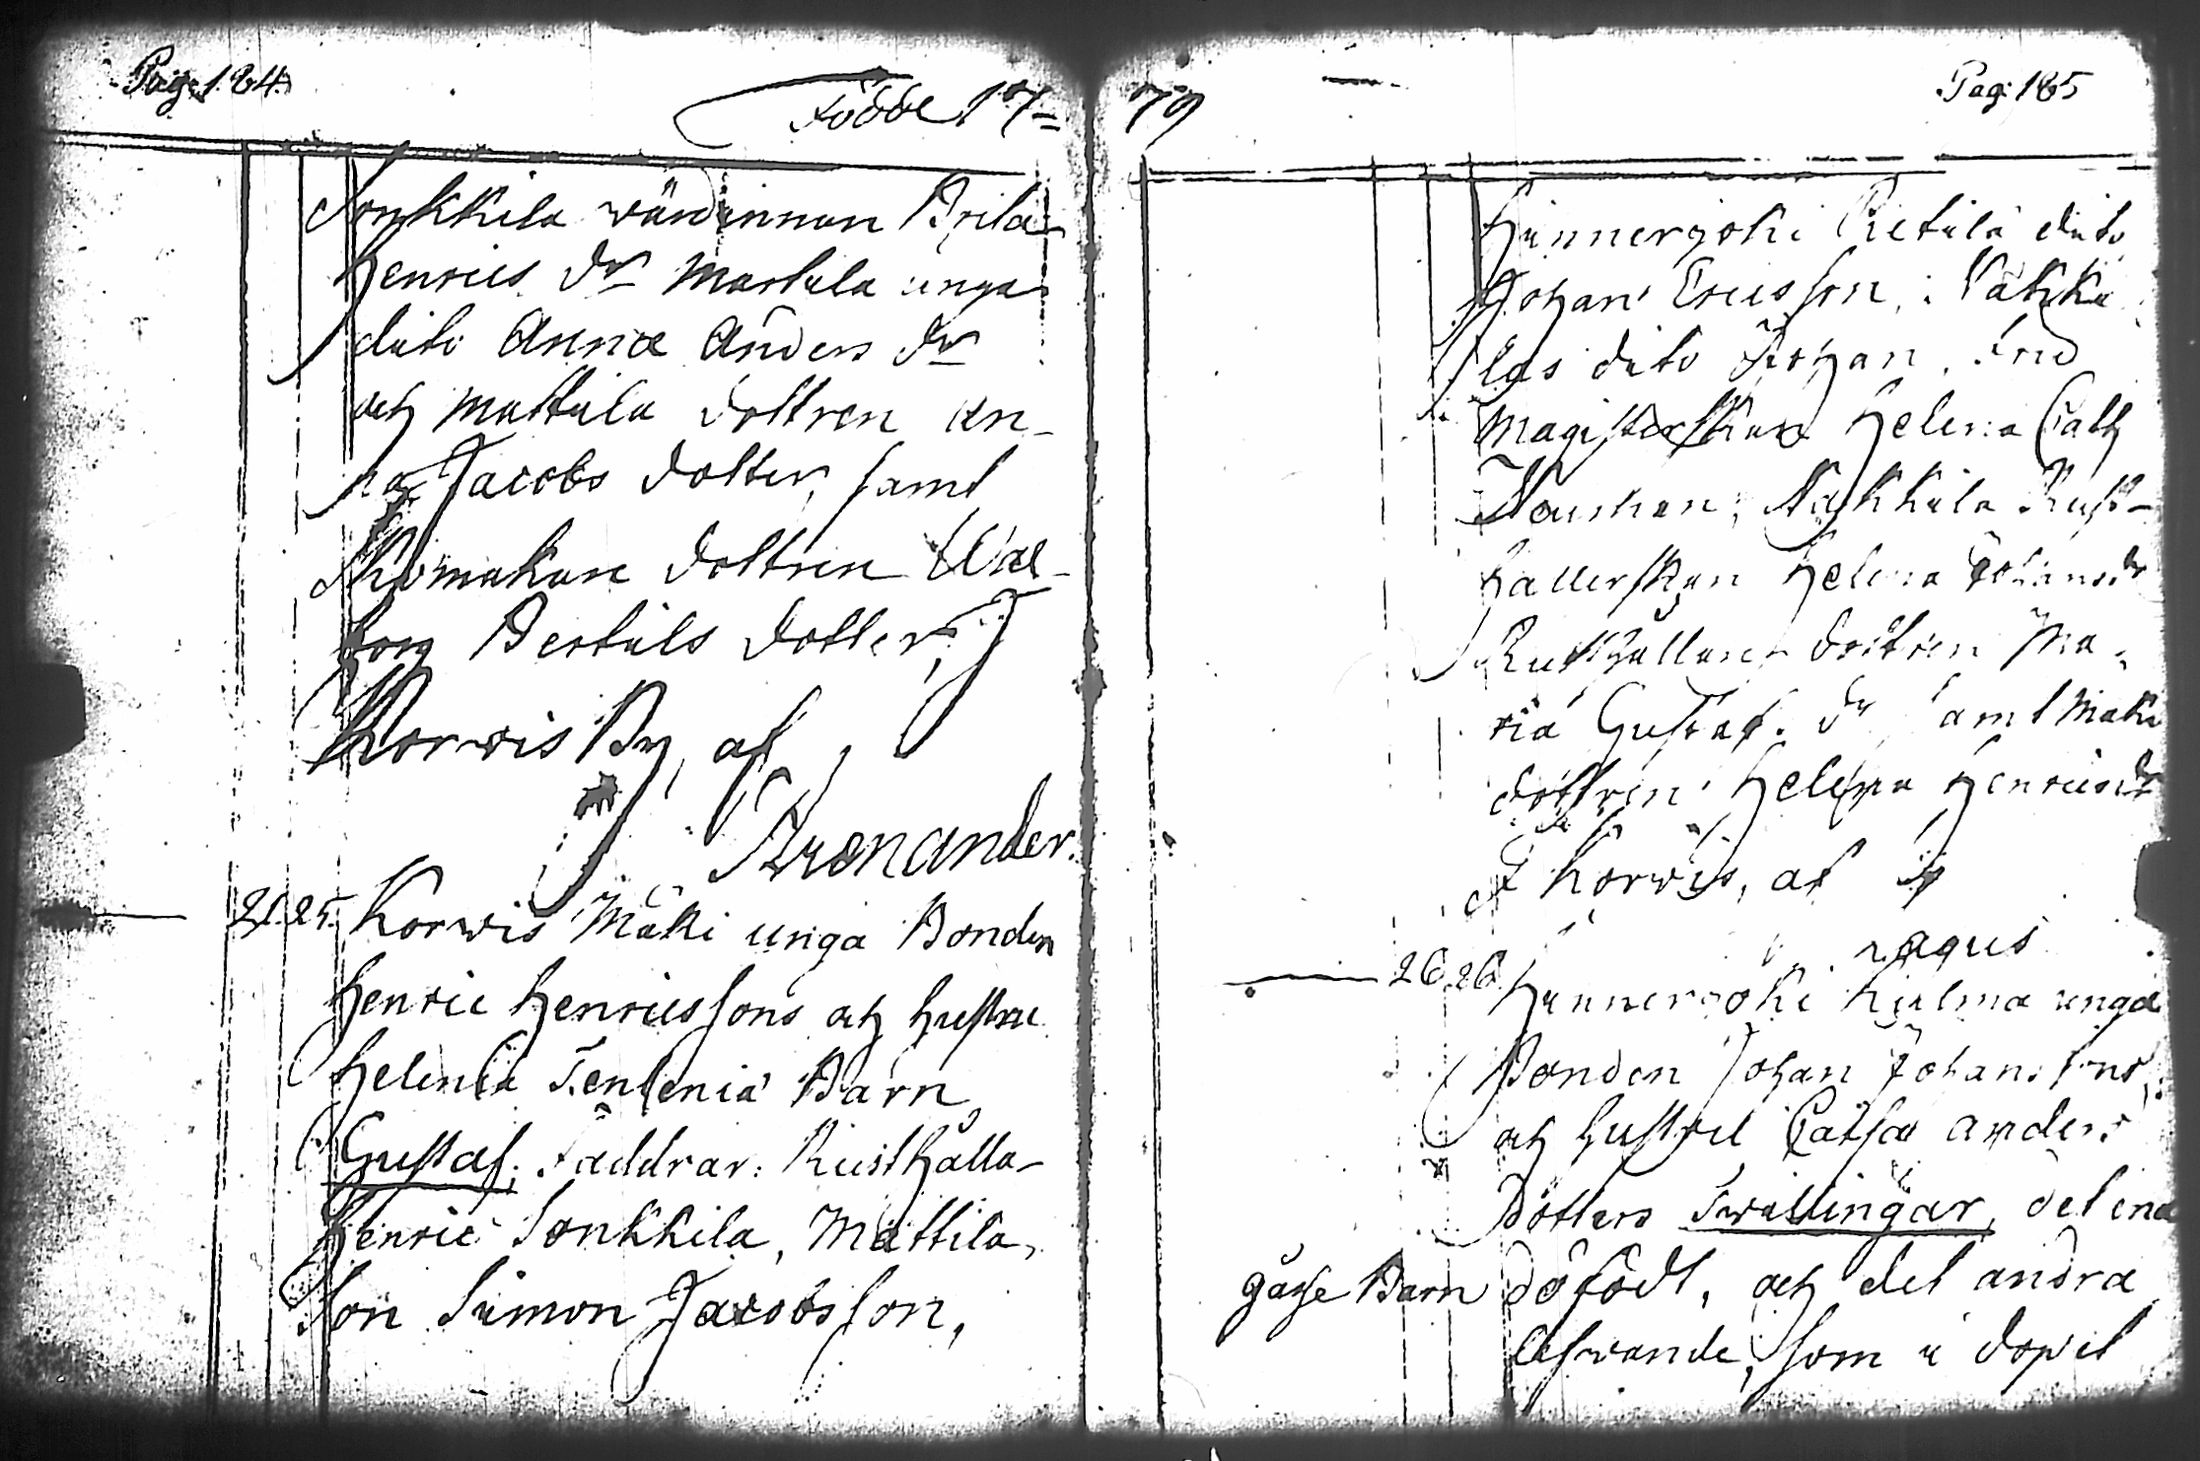 Pag: 184.
Födde 17=
Sonkkila wärdinnan Brita
Henrics dr Mattila unga
dito Anna Anders dr
och Mattila dottren An-
na Jacobs dotter, samt
Skomakare dottren Wal-
borg Bertils dotter,
Korwis By, af
Krenander.
21. 25. Korwis Mäki unga Bonden
Henric Henricssons och hustru
Helena Barn
Gustaf. Faddrar: Rusthålla-
Henric Sonkkila, Mattila
Son Simon Jacobsson,
79
Pag: 185
Hinnerjoki Pietilä dito
Johan Ericsson,
dito Johan
Magisterskan Helena Cath
Rust-
hållerskan Helena Johansdr
Rusthållare dottren Ma-
ria Gustafs dr samt Mäki
dottren Helena Henricsdr
Korwis, af
26. 26. Hinnerjoki Kulma unga
Bonden Johan Johanssons
och hustru Caisa Anders
Dotters Twillingar, det ena
gosse Barn dödfödt, och det andra
lefwande, som i dopet